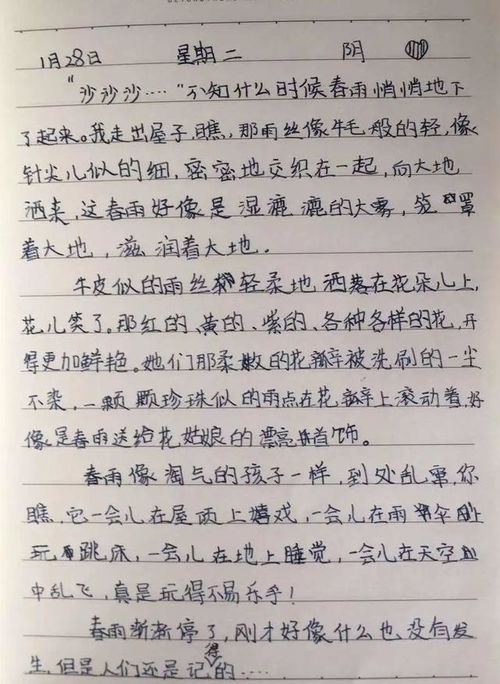 1月28日 星期二 阴
“沙沙沙····”不知什么时候春雨悄悄地下
了起来。我走出屋子,瞧,那雨丝像牛毛般的轻,像
针尖儿似的细,密密地交织在一起,向大地
洒来,这春雨好像是湿漉漉的大雾,笼罩
着大地,滋润着大地。
牛皮似的雨丝轻柔地洒落在花朵儿上,
花儿笑了。那红的、黄的、紫的、各种各样的花,开
得更加鲜艳。她们那柔嫩的花瓣被洗刷的一尘
不染,一颗颗珍珠似的雨点在花瓣上滚动着,好
像是春雨送给花姑娘的漂亮首饰。
春雨像淘气的孩子一样,到处乱窜,你
瞧,它一会儿在屋顶上嬉戏,一会儿在雨伞上
玩跳床,一会儿在地上睡觉,一会儿在天空
中乱飞,真是玩得不易乐乎!
春雨渐渐停了,刚才好像什么也没有发
生,但是人们还是记得的····